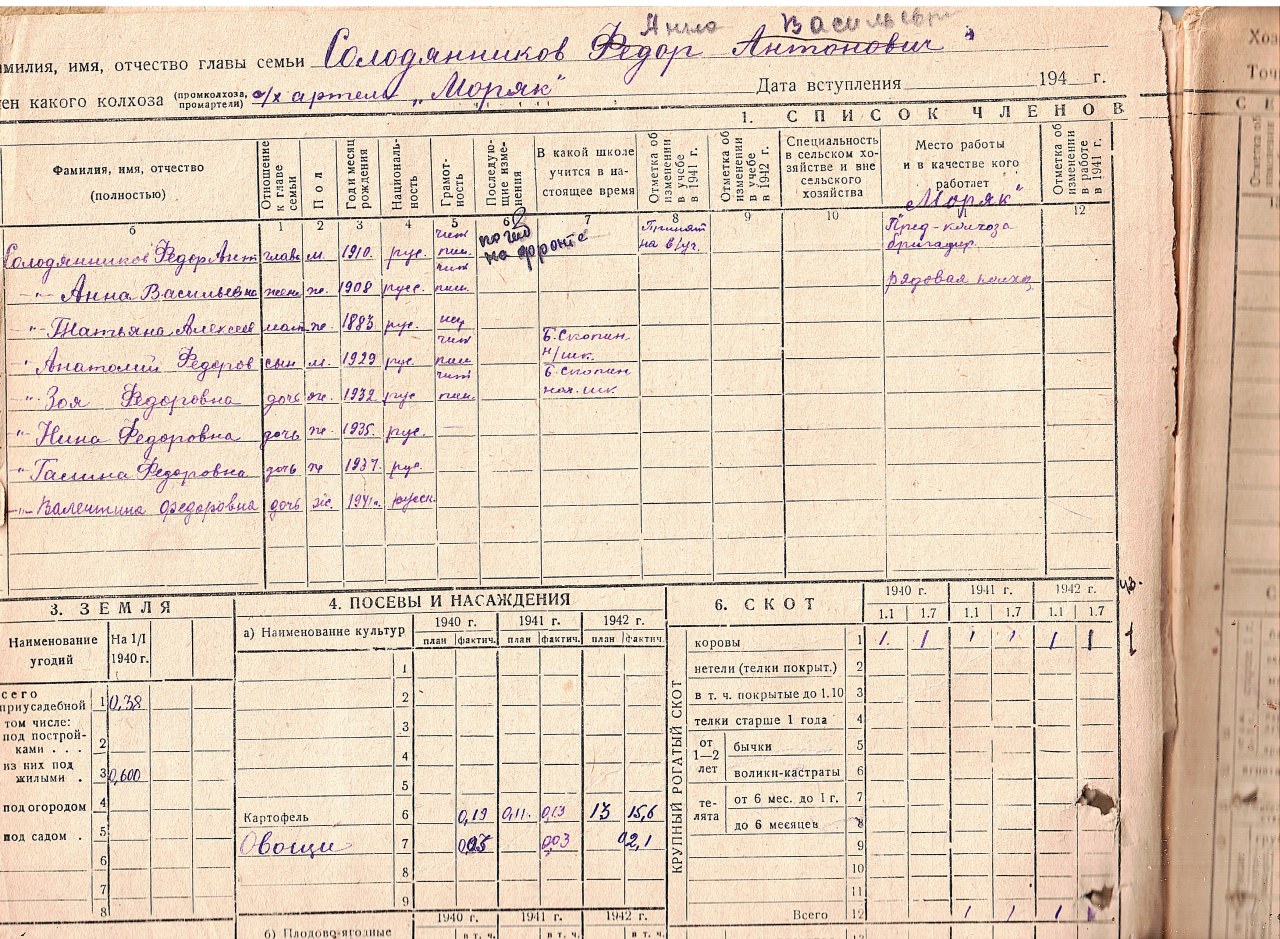 Анна Васильевн
амилия, имя, отчество главы семьи Солодянников Федор Антонович
ен какого колхоза (промколхоза, промартели) с/х артель „Моряк" Дата вступления 194 г.
1. СПИСОК ЧЛЕНОВ
Фамилия, имя, отчество (полностью) Отношение к главе семьи Пол Год и месяц рождения Националь-ность Грамот-ность Последую-щие изме-нения В какой школе учится в на-стоящее время Отметка об изменении в учебе в 1941 г. Отметка об изменении в учебе в 1942 г. Специальность в сельском хо-зяйстве и вне сельского хозяйства Место работы и в качестве кого работает Отметка об изменении в работе в 1941 г.
„Моряк"
б 1 2 3 4 5 6 7 8 9 10 12
Солодянников Федор Ант глава м. 1910. рус. чит пис. погиб на фронте Принят на в/уч. Пред-колхоза бригадир.
-"- Анна Васильевна жена ж. 1908 русс. чит пис. рядовая колхоз
-"- Татьяна Алексеев мать ж. 1883 рус. нег
" Анатолий Федоров сын м. 1929 рус. чит пис. Б.Скопин н/шк.
" Зоя Федоровна дочь ж. 1932 рус чит пис. Б Скопин нач. шк
" Нина Федоровна дочь ж. 1935. рус.
" Галина Федоровна дочь ж 1937. рус.
-"- Валентина Федоровна дочь ж. 1941г. русск.
3. ЗЕМЛЯ
Наименование угодий На 1/I 1940 г.
сего приусадебной 1 0,38
том числе:
под построй-ками . . . 2
из них под жилыми . 3 0,600
под огородом 4
под садом . 5
6
7
8
4. ПОСЕВЫ И НАСАЖДЕНИЯ
а) Наименование культур 1940 г. 1941 г. 1942 г.
план фактич. план фактич. план фактич.
1
2
3
4
5
Картофель 6 0,19 0,11. 0,13 13 15,6
Овощи 7 0,03 02,1
8
9
1940 г. 1941 г. 1942 г.
б) Плодово-ягодные в т. ч. в т. ч. в т. ч.
6. СКОТ
1940 г. 1941 г. 1942 г.
1.1 1.7 1.1 1.7 1.1 1.7
КРУПНЫЙ РОГАТЫЙ СКОТ
коровы 1 1. 1 1 1 1 1
нетели (телки покрыт.) 2
в т. ч. покрытые до 1.10 3
телки старше 1 года 4
от 1—2 лет бычки 5
волики-кастраты 6
те-лята от 6 мес. до 1 г. 7
до 6 месяцев 8
9
10
11
Всего 12 1 1 1
Хоз
Точ